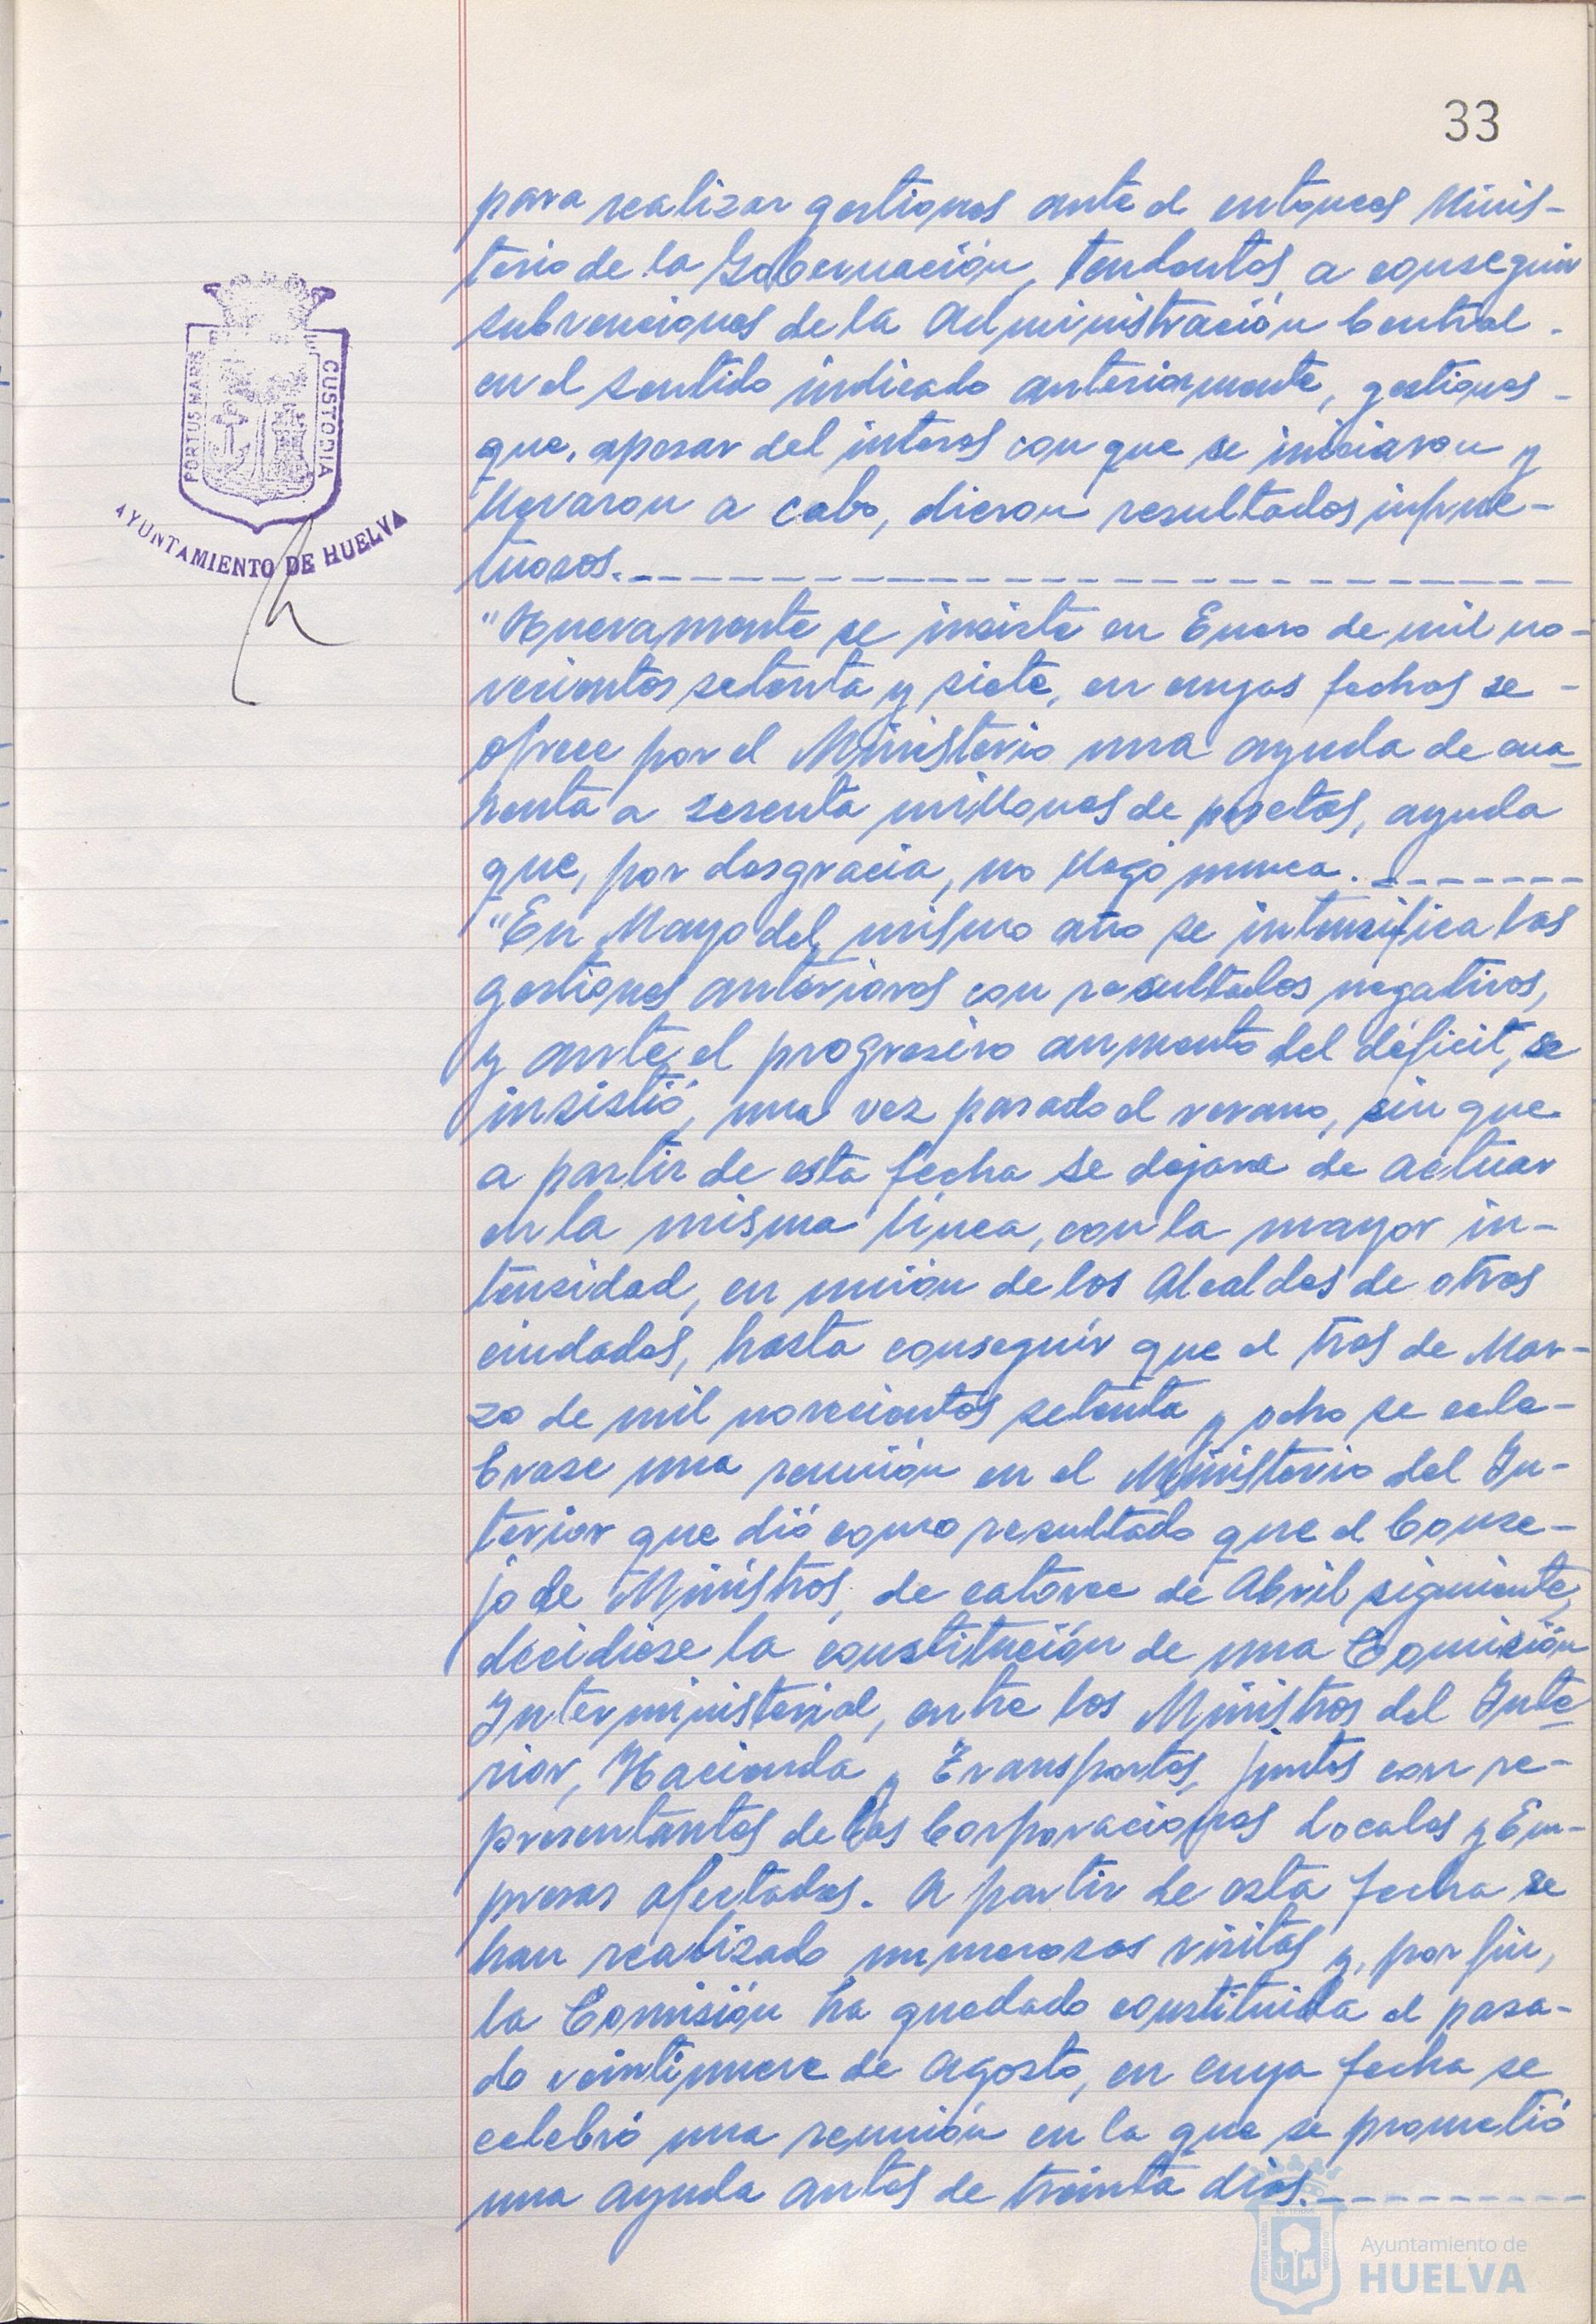 33
para realizar gestiones ante el entonces Minis-
terio de la Gobernación, tendentes a conseguir
subvenciones de la Administración Central -
en el sentido indicado anteriormente, gestiones -
que, apesar del interes con que se iniciaron y
llevaron a cabo, dieron resultados infruc-
tuosos.
"Nuevamente se insiste en Enero de mil no-
vecientos setenta y siete, en cuyas fechas se -
ofrece por el Ministerio una ayuda de cua-
renta a sesenta millones de pesetas, ayuda
que, por desgracia, no llegó nunca.
"En Mayo del mismo año se intensifica las
gestiones anteriores con resultados negativos,
y ante el progresivo aumento del déficit, se
insistió, una vez pasado el verano, sin que
a partir de esta fecha se dejara de actuar
en la misma línea, con la mayor in-
tensidad, en unión de los Alcaldes de otras
ciudades, hasta conseguir que el tres de Mar-
zo de mil novecientos setenta y ocho se cele-
brase una reunión en el Ministerio del In-
terior que dió como resultado que el Conse-
jo de Ministros, de catorce de Abril siguiente,
decidiese la constitución de una Comisión
Interministerial, entre los Ministros del Inte-
rior, Hacienda y Transportes, juntos con re-
presentantes de las Corporaciones Locales y Em-
presas afectadas. A partir de esta fecha se
han realizado numerosas visitas y, por fin,
la Comisión ha quedado constituida el pasa-
do veintinueve de Agosto, en cuya fecha se
celebró una reunión en la que se prometió
una ayuda antes de treinta dias.
PORTUS MARIS
CUSTODIA
AYUNTAMIENTO DE HUELVA
Ayuntamiento de
HUELVA